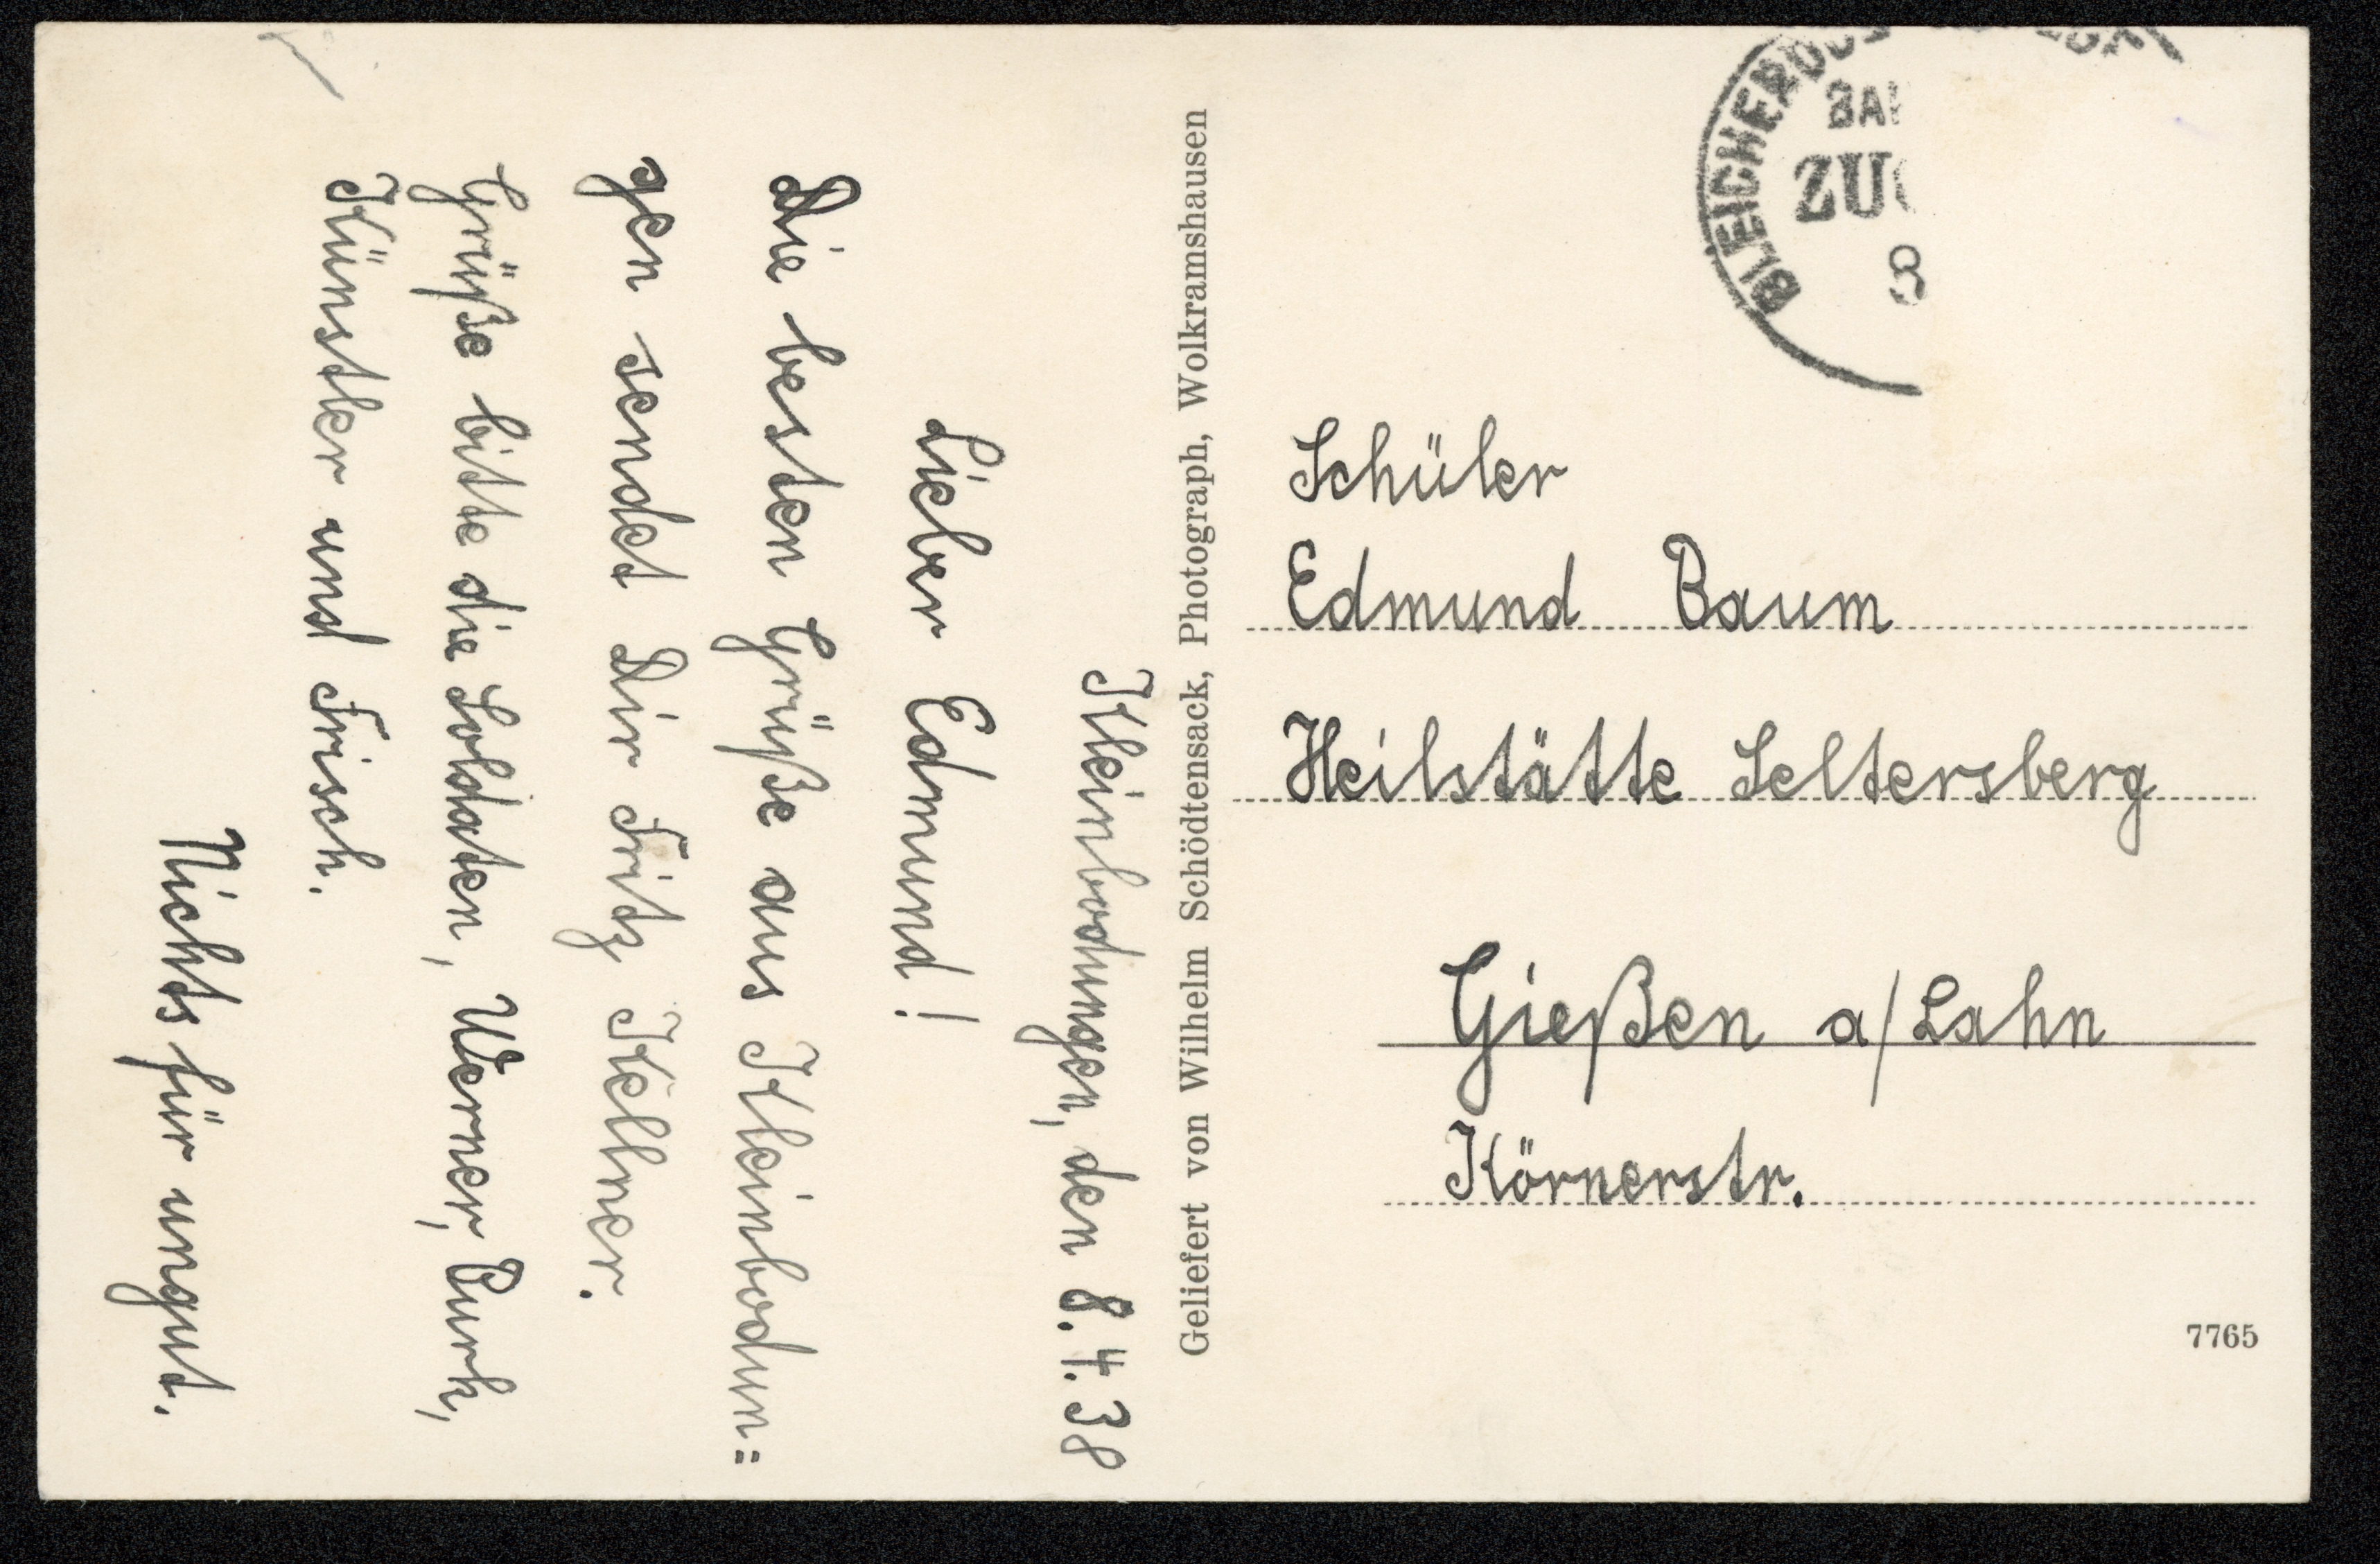 Kleinbodungen, den 8.4.38
Lieber Edmund!
Die besten Grüße aus Kleinbodun=
gen sendet Dir Fritz Kellner.
Grüße bitte die Soldaten, Werner, Burk,
Künstler und Frisch.
Nichts für ungut.
Geliefert von Wilhelm Schödtensack, Photograph, Wolkramshausen
ZUG
8
Schüler
Edmund Baum
Heilstätte Seltersberg
Gießen a/Lahn
Körnerstr.
7765